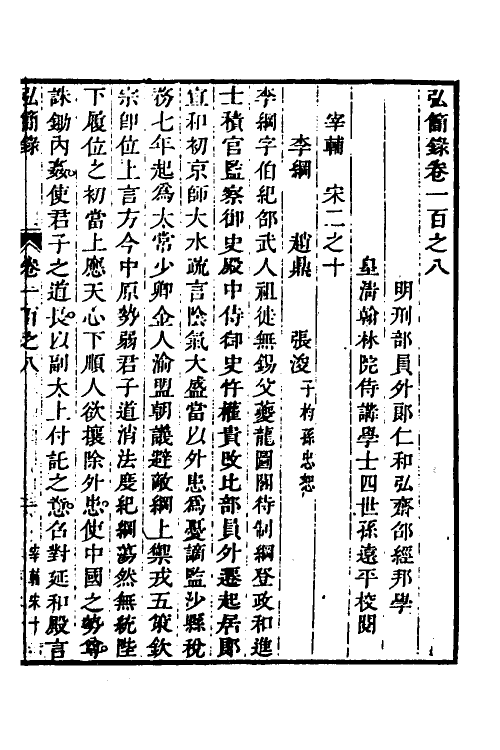 弘簡錄卷一百之八
明刑部員外郎仁和弘齋邵經邦學
皇清翰林院侍講學士四世孫遠平校閱
宰輔　宋二之十
李綱　趙鼎　張浚子杓孫忠恕
李綱字伯紀邵武人祖徙無錫父夔龍圖閣待制綱登政和進
士積官監察御史殿中侍御史忤權貴改比部員外遷起居郎
宣和初京師大水疏言陰氣大盛當以外患為憂謫監沙縣稅
務七年起為太常少卿金人渝盟朝議避敵綱上禦戎五策欽
宗即位上言方今中原勢弱君子道消法度紀綱蕩然無統陛
下履位之初當上應天心下順人欲攘除外患使中國之勢尊
誅鋤內姦使君子之道長以副太上付託之意召對延和殿言
弘簡錄　卷一百之八　宰輔宋十